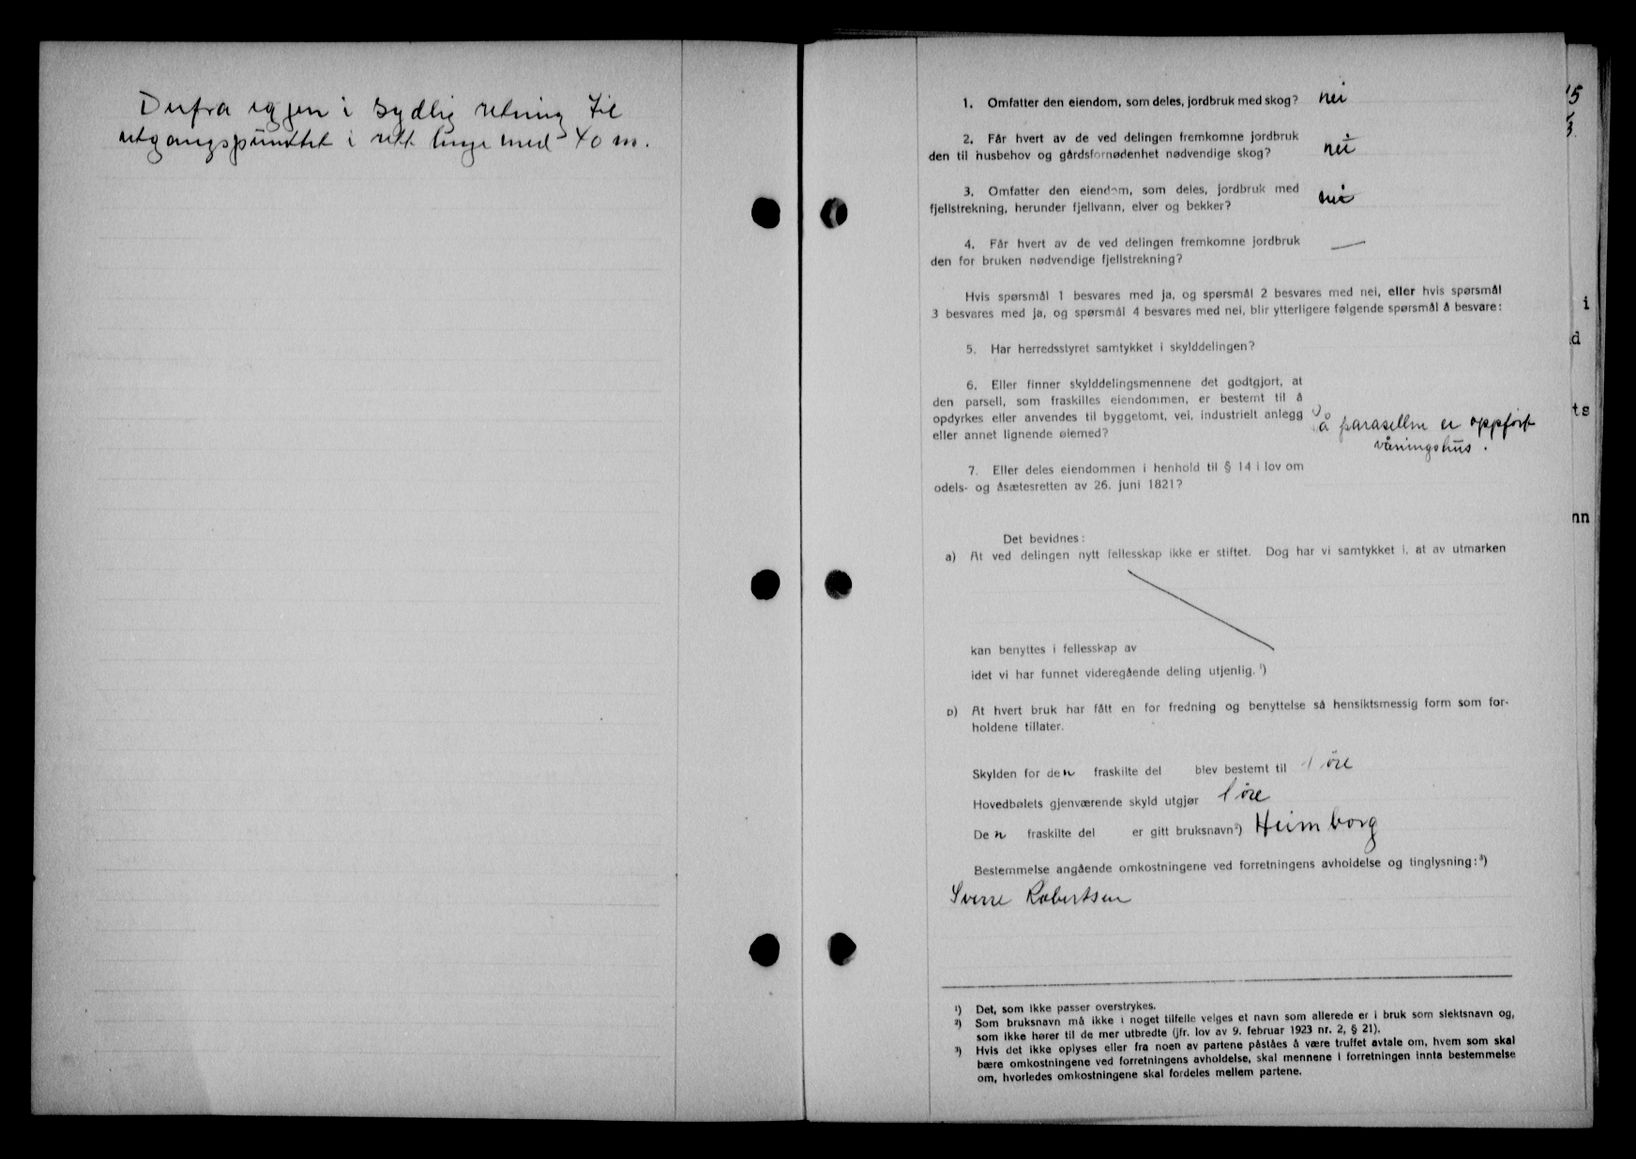 Derfra igjen i sydlig retning til
utgangspunktet i rett linje med 40 m.
1. Omfatter den eiendom, som deles, jordbruk med skog? nei
2. Får hvert av de ved delingen fremkomne jordbruk
den til husbehov og gårdsfornødenhet nødvendige skog? nei
3. Omfatter den eiendom, som deles, jordbruk med
fjellstrekning, herunder fjellvann, elver og bekker? nei
4. Får hvert av de ved delingen fremkomne jordbruk
den for bruken nødvendige fjellstrekning? —
Hvis spørsmål 1 besvares med ja, og spørsmål 2 besvares med nei, eller hvis spørsmål
3 besvares med ja, og spørsmål 4 besvares med nei, blir ytterligere følgende spørsmål å besvare:
5. Har herredsstyret samtykket i skylddelingen?
6. Eller finner skylddelingsmennene det godtgjort, at
den parsell, som fraskilles eiendommen, er bestemt til å
opdyrkes eller anvendes til byggetomt, vei, industrielt anlegg
eller annet lignende øiemed?
På parasellen er oppført
våningshus.
7. Eller deles eiendommen i henhold til § 14 i lov om
odels- og åsætesretten av 26. juni 1821?
Det bevidnes:
a) At ved delingen nytt fellesskap ikke er stiftet. Dog har vi samtykket i, at av utmarken
kan benyttes i fellesskap av
idet vi har funnet videregående deling utjenlig. ¹)
b) At hvert bruk har fått en for fredning og benyttelse så hensiktsmessig form som for-
holdene tillater.
Skylden for den fraskilte del blev bestemt til 1 øre
Hovedbølets gjenværende skyld utgjør 1 øre
Den fraskilte del er gitt bruksnavn²) Heimborg
Bestemmelse angående omkostningene ved forretningens avholdelse og tinglysning:³)
Sverre Robertsen
¹) Det, som ikke passer overstrykes.
²) Som bruksnavn må ikke i noget tilfelle velges et navn som allerede er i bruk som slektsnavn og,
som ikke hører til de mer utbredte (jfr. lov av 9. februar 1923 nr. 2, § 21).
³) Hvis det ikke oplyses eller fra noen av partene påståes å være truffet avtale om, hvem som skal
bære omkostningene ved forretningens avholdelse, skal mennene i forretningen innta bestemmelse
om, hvorledes omkostningene skal fordeles mellem partene.